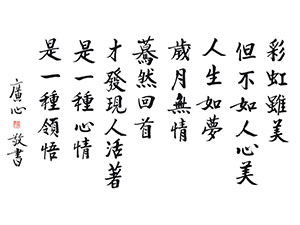 彩虹雖美
但不如人心美
人生如夢
歲月無情
驀然回首
才發現人活著
是一種心情
是一種領悟
廣心
敬書